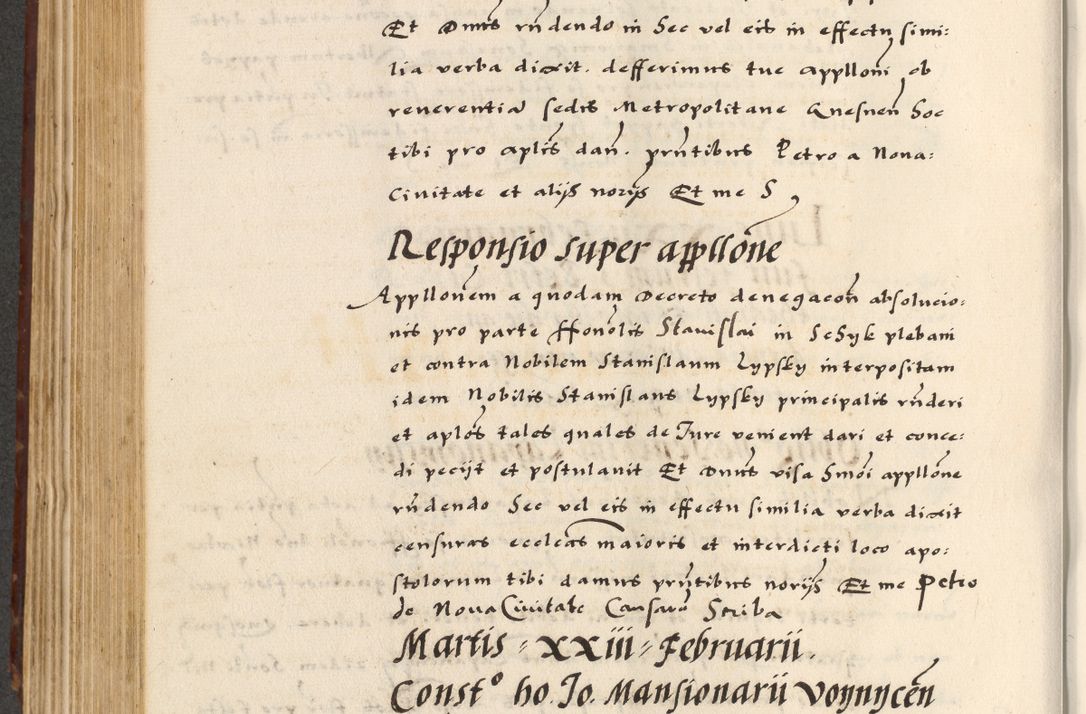 Et Dnus rndendo in Sec vel eis in effectu simi:
lia verba dixit. defferimus tue applloni ob
reverentia sedis Metropolitane Gnesnen Hoc
tibi pro aplis dan. pntibus Petro a Nova:
Civitate et alijs norijs Et me S
Responsio super appllone
Appllonem a quodam Decreto denegacon absolucio:
nis pro parte Honolis Stanislai in plebani
et contra Nobilem Stanislaum Lypsky interpositam
idem Nobilis Stanislaus Lypsky principalis rnderi
et aplos tales quales de Jure venient dari et conce:
di pecijt et postulavit Et Dnus visa Smoi appllone
rndendo Sec vel eis in effectu similia verba dixit
censuras ecclcas maioris et interdicti loco apo:
stolorum tibi damus pntibus norijs Et me Petro
de Nova Civitate Causaru Scriba
Martis = XXiii = Februarii.
Const° ho. Jo. Mansionarii Voynycen